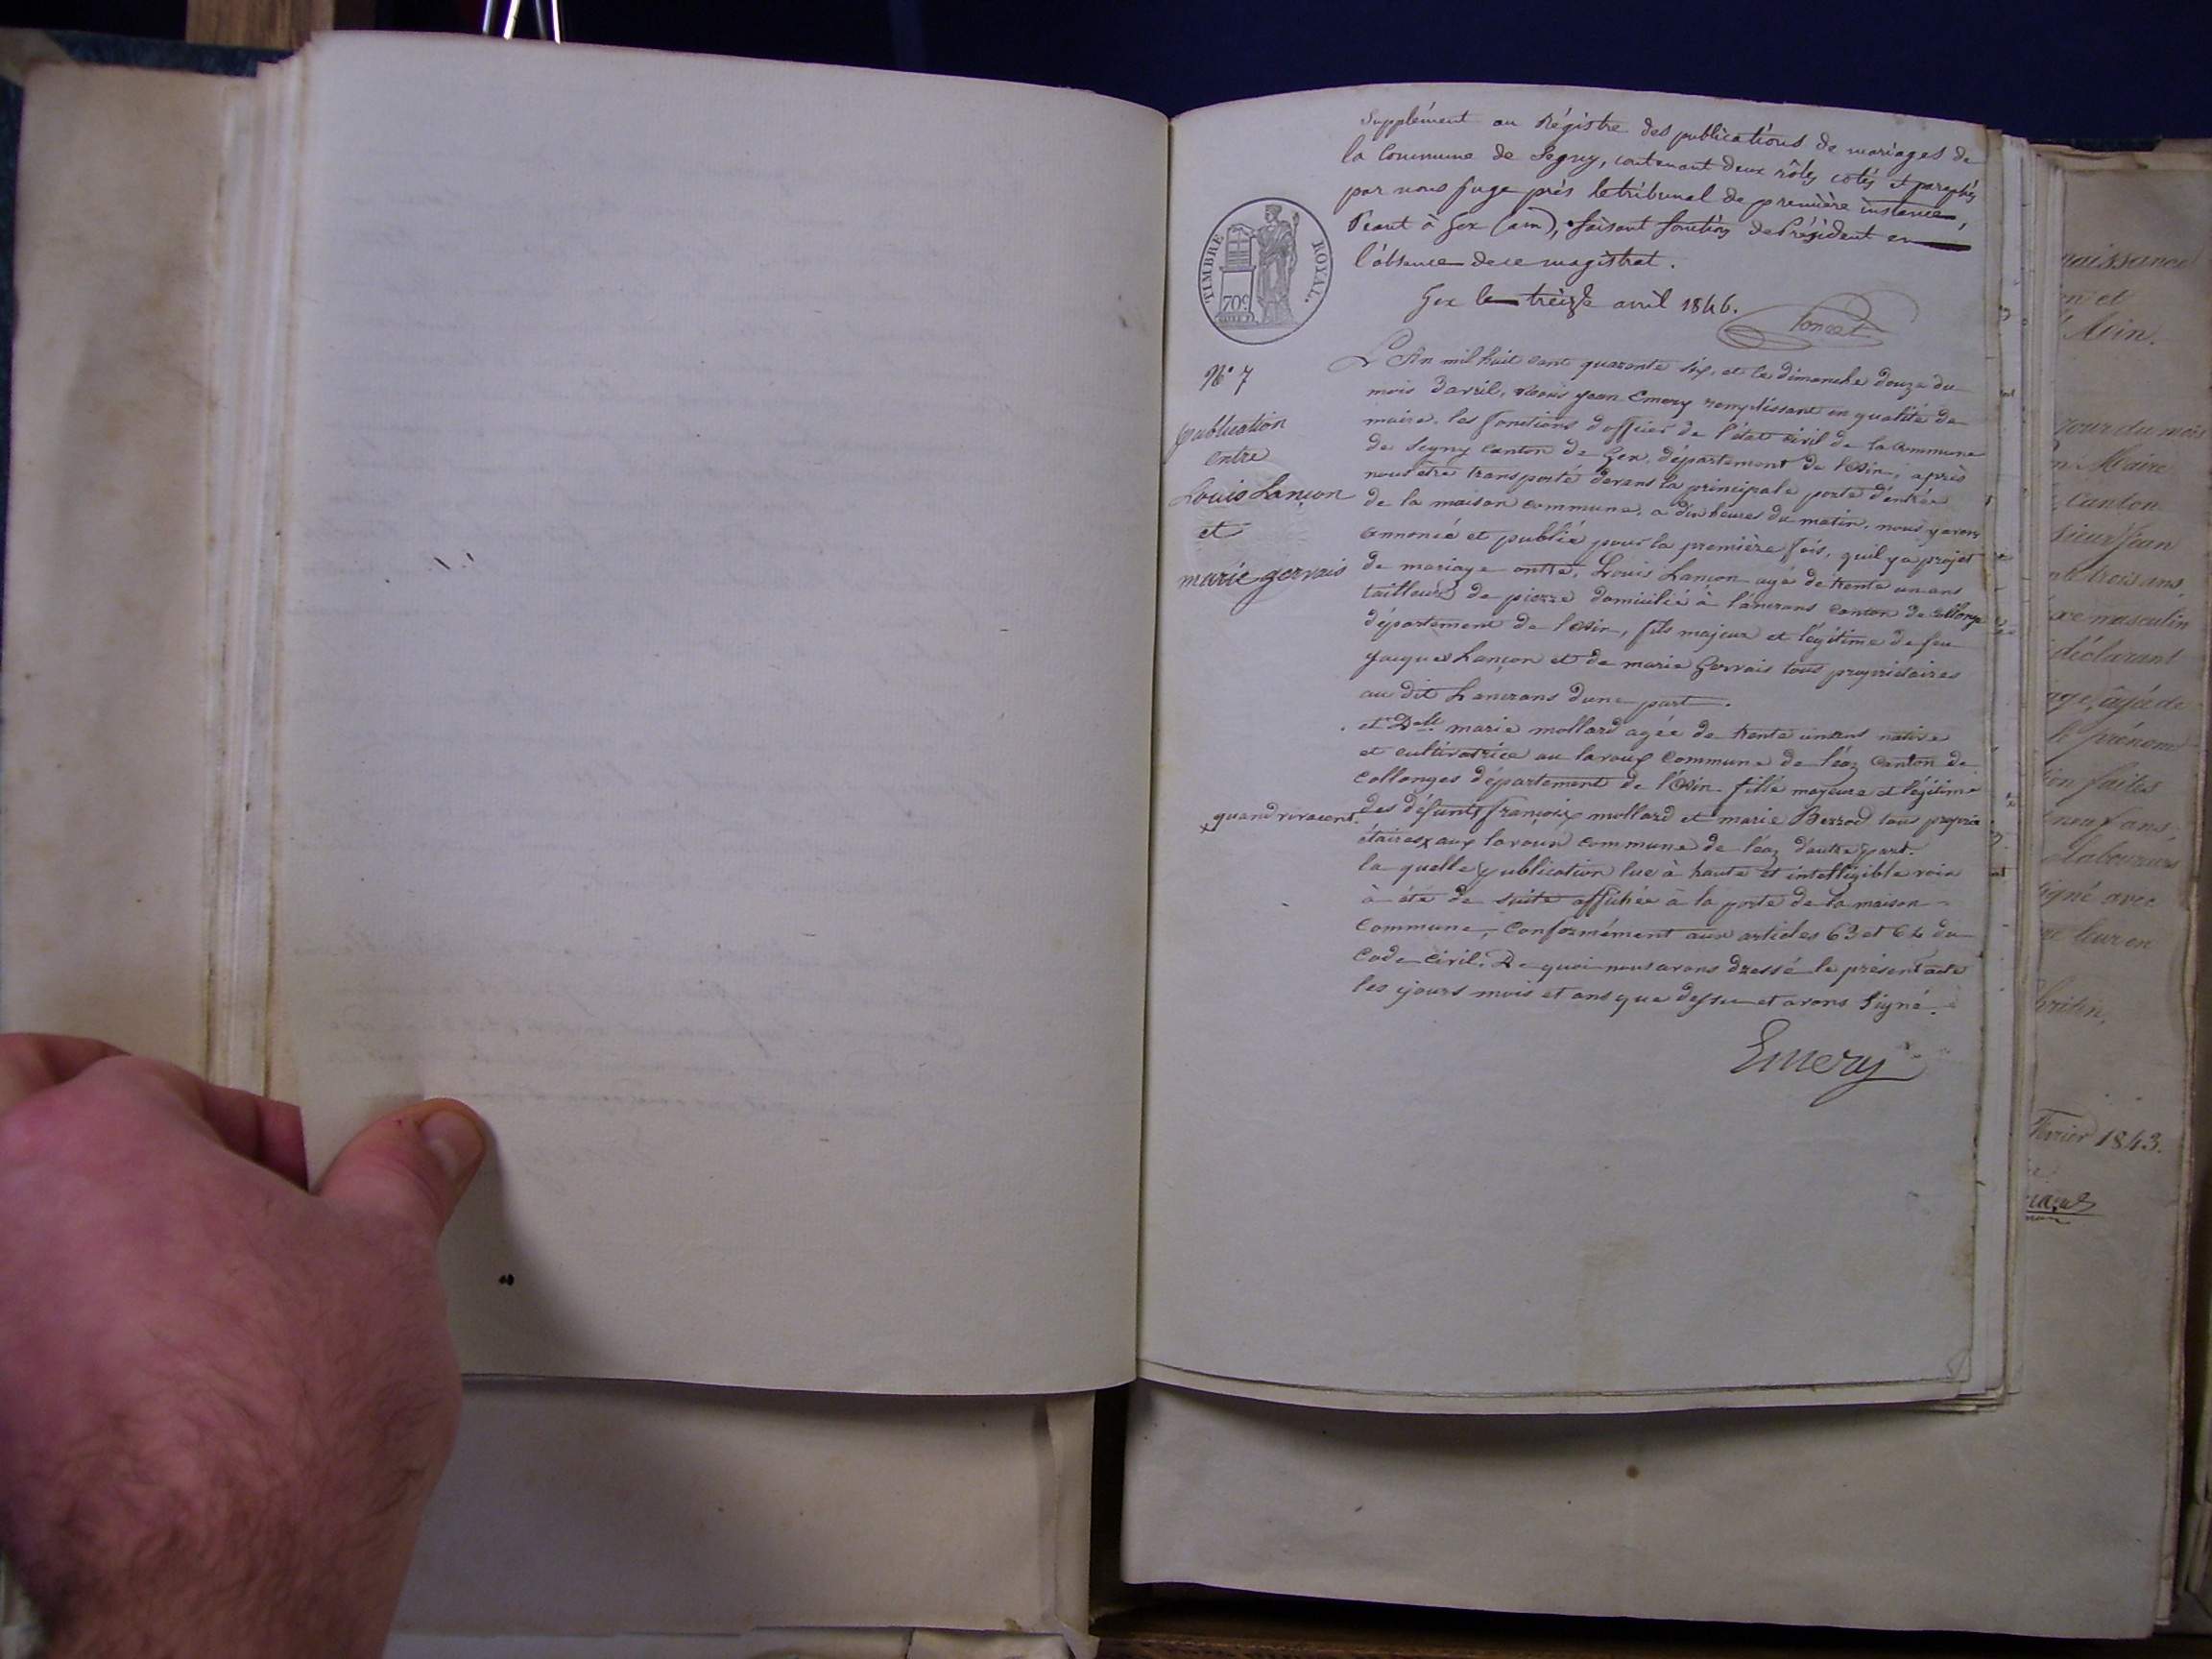 Supplément au Régistre des publications de mariages de
la Commune de Segny, contenant deux rôles cotés et paraphés
par nous juge près le tribunal de première instance,
séant à Gex (ain), faisant fonction de Président en
l'absence de ce magistrat.
Gex le treize avril 1846.
Poncet
TIMBRE ROYAL.
70c.
N° 7
publication
entre
Louis Lançon
et
marie gervais
L'An mil huit cent quarante six, et le dimanche douze du
mois d'avril, Nous jean Emery remplissant en qualité de
maire, les fonctions d'officier de l'état civil de la commune
de Segny Canton de Gex, département de l'Ain, après
nous être transporté devant la principale porte d'entrée
de la maison commune, a dix heures du matin, nous y avons
annoncé et publié pour la première fois, quil y a projet
de mariage entre, Louis Lançon agé de trente un ans
tailleur de pierre domicilié à Lancrans Canton de Collonge
département de l'Ain, fils majeur et légitime de feu
jacques Lançon et de marie Gervais tous propriétaires
au dit Lancrans dune part.
et Delle marie mollard agée de trente un ans native
et cultivatrice au lavoux Commune de léaz Canton de
Collonges département de l'Ain fille majeure et légitime
des défunts françois mollard et marie Berrod tous proprié
étaires x aux lavoux Commune de léaz d'autre part.
x quand vivaient.
la quelle publication lue à haute et intelligible voix
à été de suite affichée à la porte de la maison
Commune, Conformément aux articles 63 et 64 du
Code Civil. De quoi nous avons dressé le présent acte
les jours mois et ans que dessu et avons signé.
Emery
naissance
en et
Ain.
jour du mois
Maire
Canton
sieur Jean
trois ans,
sexe masculin
déclarant
âgé de
prénom
faites
neuf ans,
laboureurs
signé avec
leur en
février 1843.